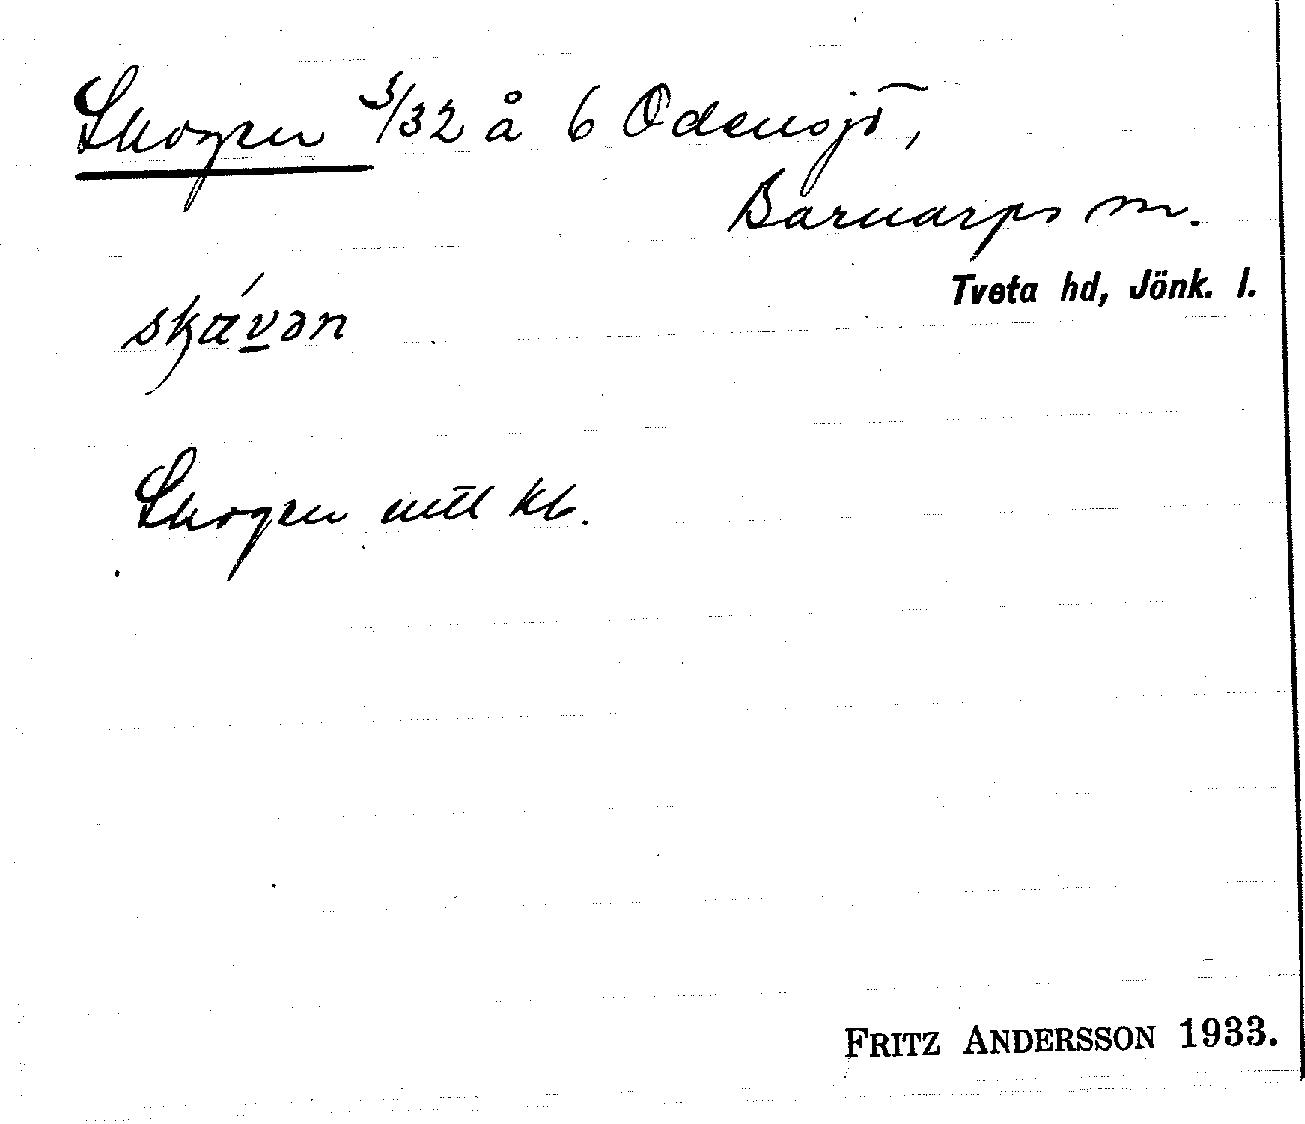 Skogen 3/32 å 6 Odensjö,
Barnarps sn.
Tveta hd, Jönk. l.
skávən
Skogen mtl kb.
FRITZ ANDERSSON 1933.